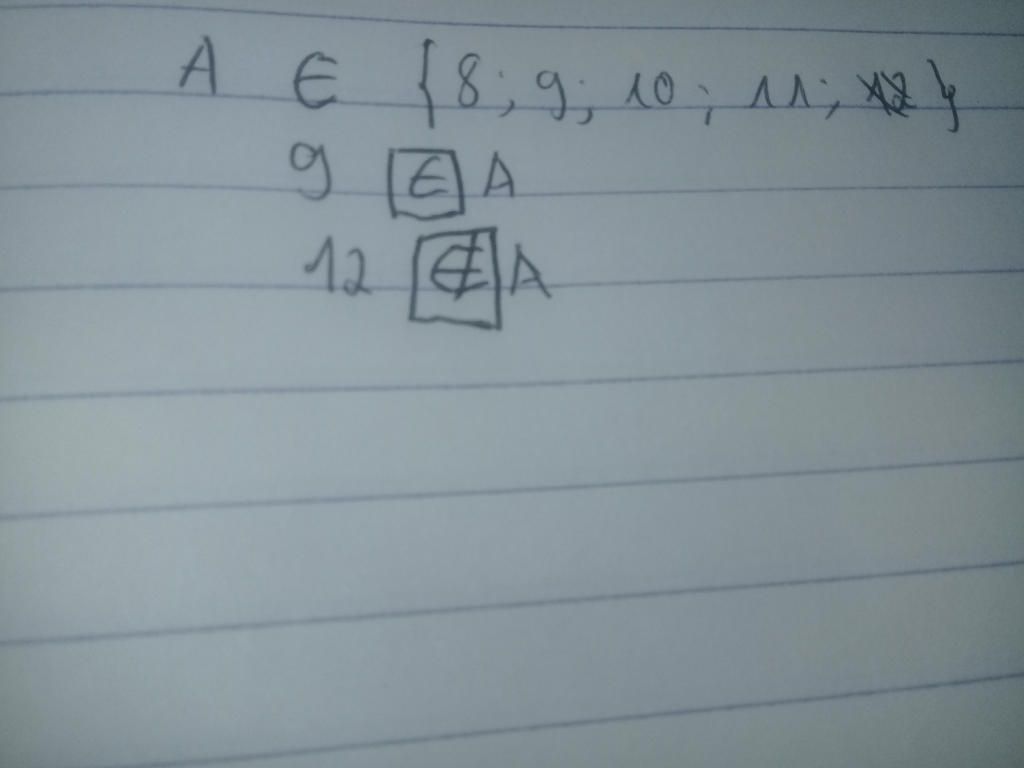 A ∈ {8; 9; 10; 11; 12}
9 ∈ A
12 ∉ A